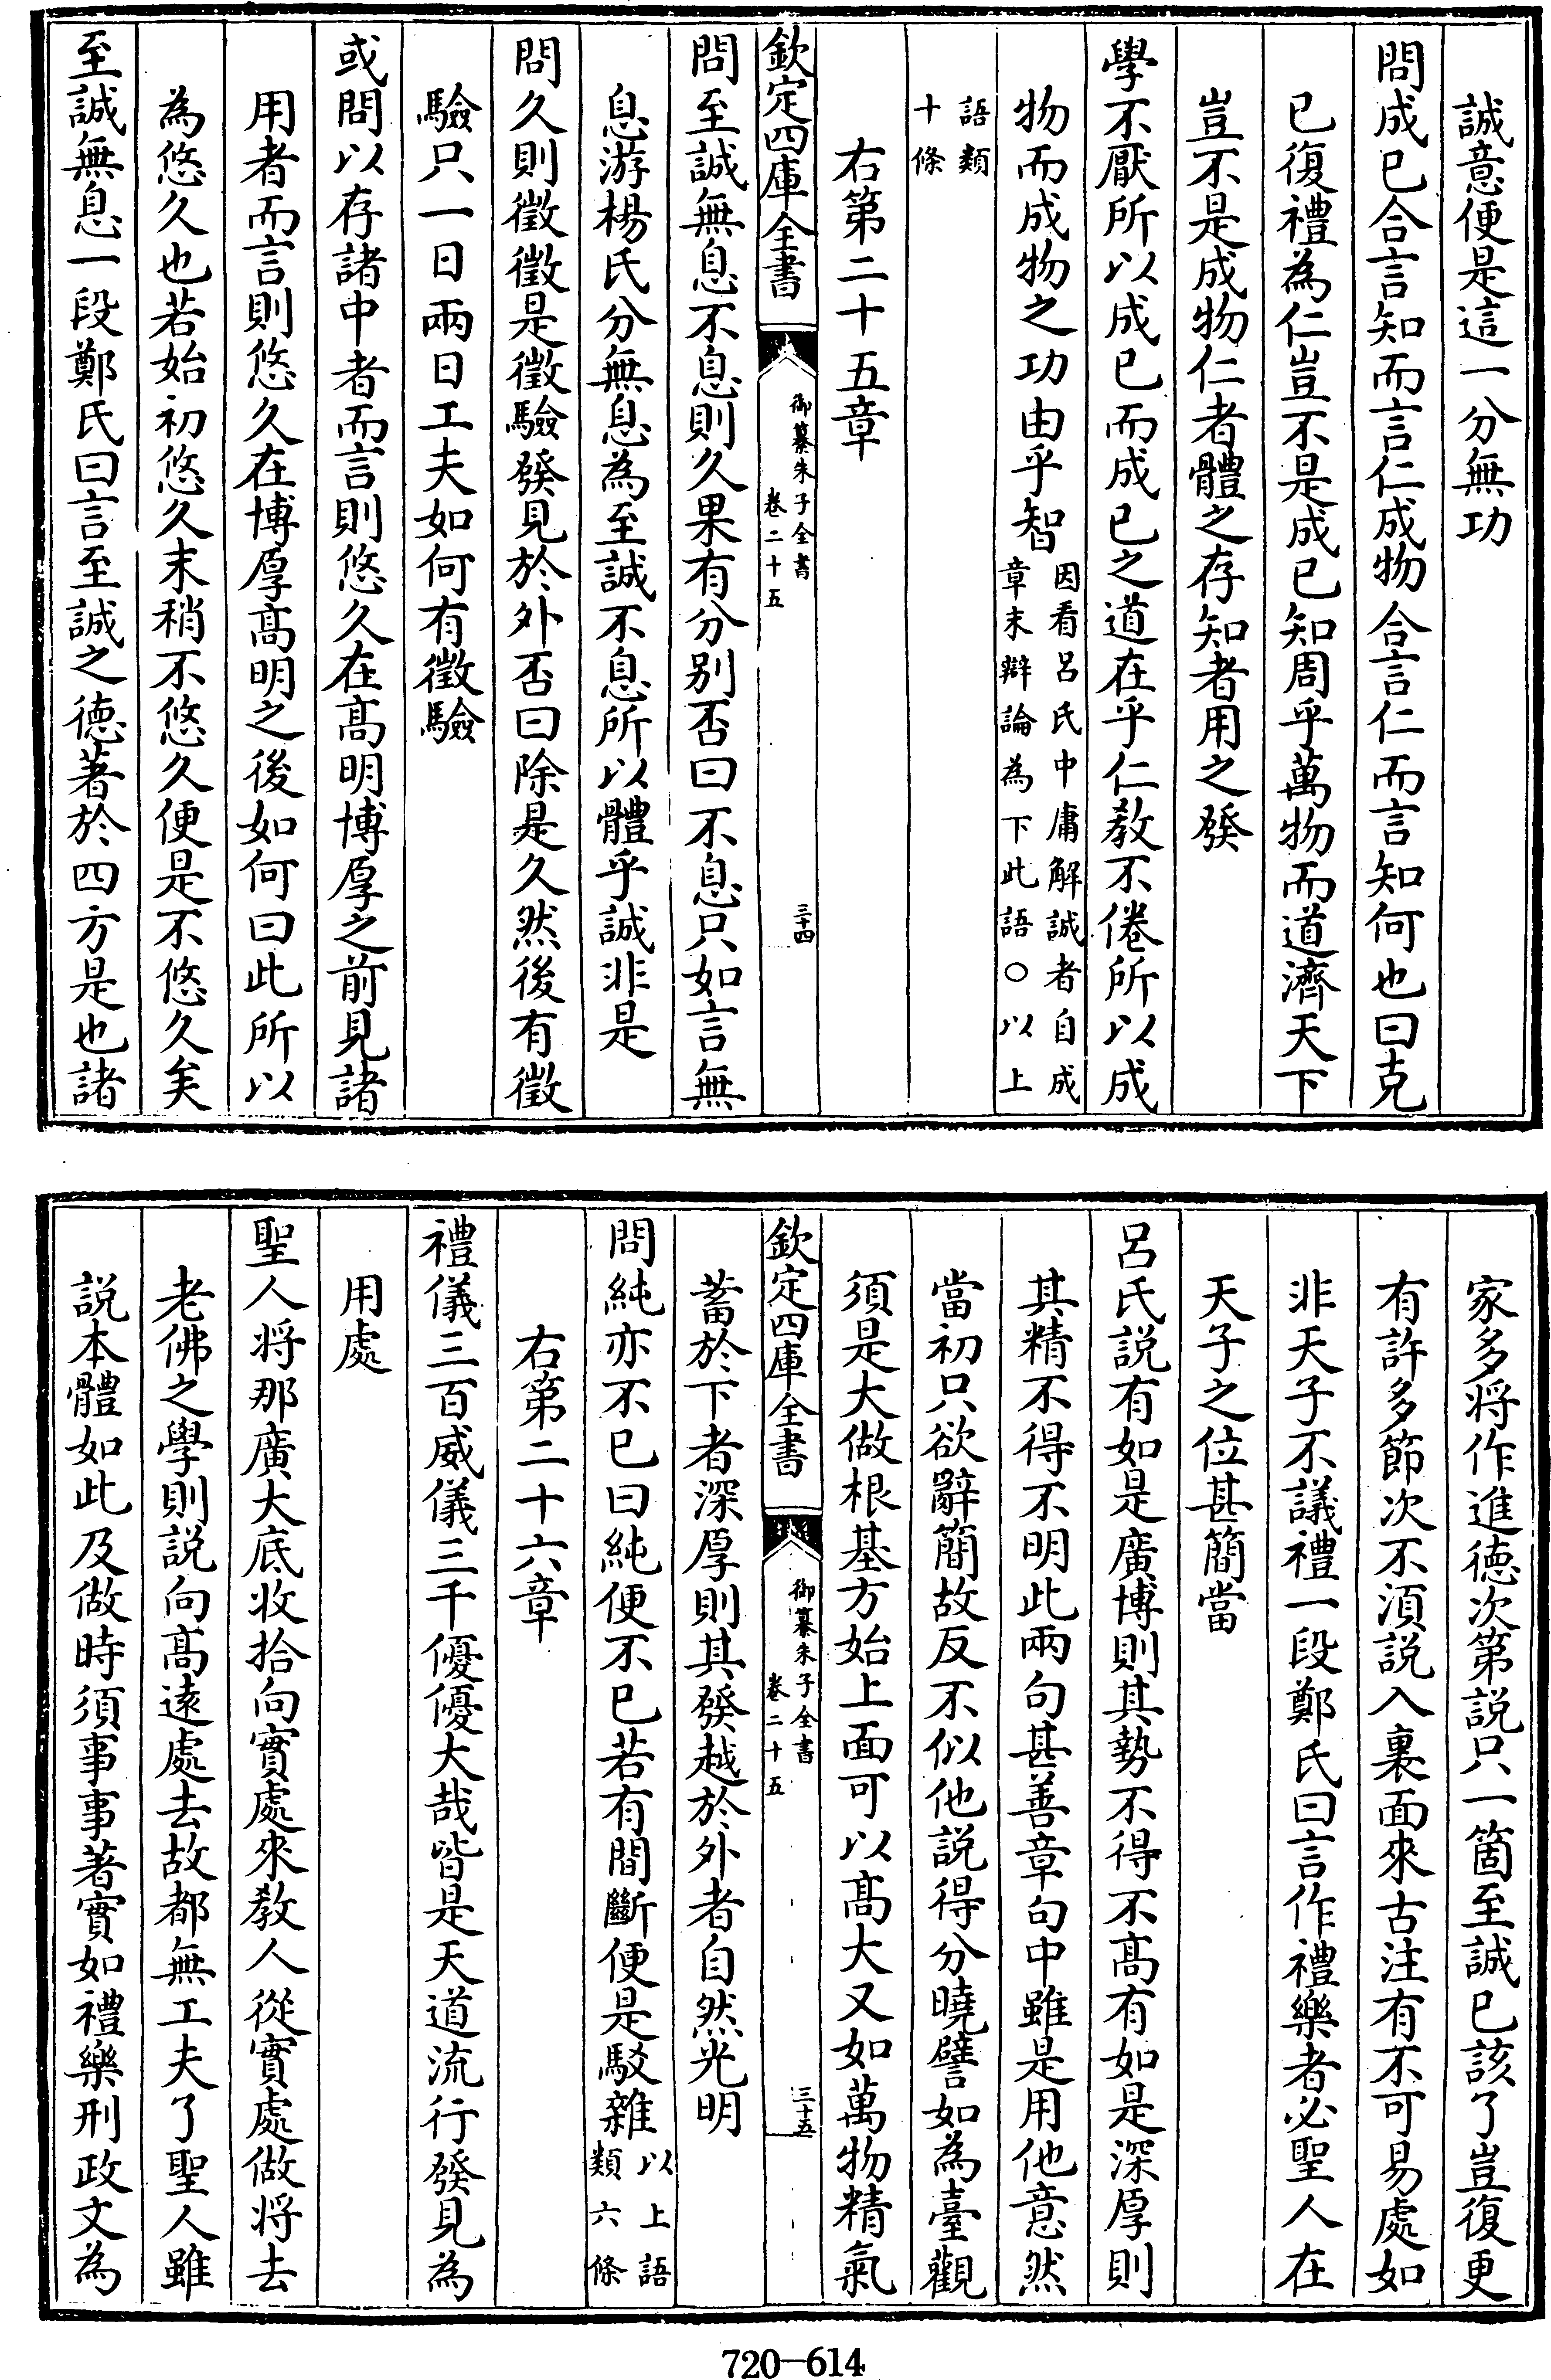 誠意便是這一分無功
問成已合言知而言仁成物合言仁而言知何也曰克
已復禮為仁豈不是成已知周乎萬物而道濟天下
豈不是成物仁者體之存知者用之發
學不厭所以成已而成已之道在乎仁教不倦所以成
物而成物之功由乎智因看呂氏中庸解誠者自成
章末辯論為下此語○以上
語類
十條
右第二十五章
欽定四庫全書
御纂朱子全書
卷二十五
三十四
問至誠無息不息則久果有分别否曰不息只如言無
息游楊氏分無息為至誠不息所以體乎誠非是
問久則徵徵是徵驗發見於外否曰除是久然後有徵
驗只一日兩日工夫如何有徵驗
或問以存諸中者而言則悠久在髙明博厚之前見諸
用者而言則悠久在博厚髙明之後如何曰此所以
為悠久也若始初悠久末稍不悠久便是不悠久矣
至誠無息一段鄭氏曰言至誠之徳著於四方是也諸
家多將作進徳次第説只一箇至誠已該了豈復更
有許多節次不須説入裏面來古注有不可易處如
非天子不議禮一段鄭氏曰言作禮樂者必聖人在
天子之位甚簡當
呂氏説有如是廣博則其勢不得不髙有如是深厚則
其精不得不明此兩句甚善章句中雖是用他意然
當初只欲辭簡故反不似他説得分曉譬如為臺觀
須是大做根基方始上面可以髙大又如萬物精氣
欽定四庫全書
御纂朱子全書
卷二十五
三十五
蓄於下者深厚則其發越於外者自然光明
問純亦不已曰純便不已若有間斷便是駁雜以上語
類六條
右第二十六章
禮儀三百威儀三千優優大哉皆是天道流行發見為
用處
聖人將那廣大底收拾向實處來教人從實處做將去
老佛之學則説向髙逺處去故都無工夫了聖人雖
説本體如此及做時須事事著實如禮樂刑政文為
720-614